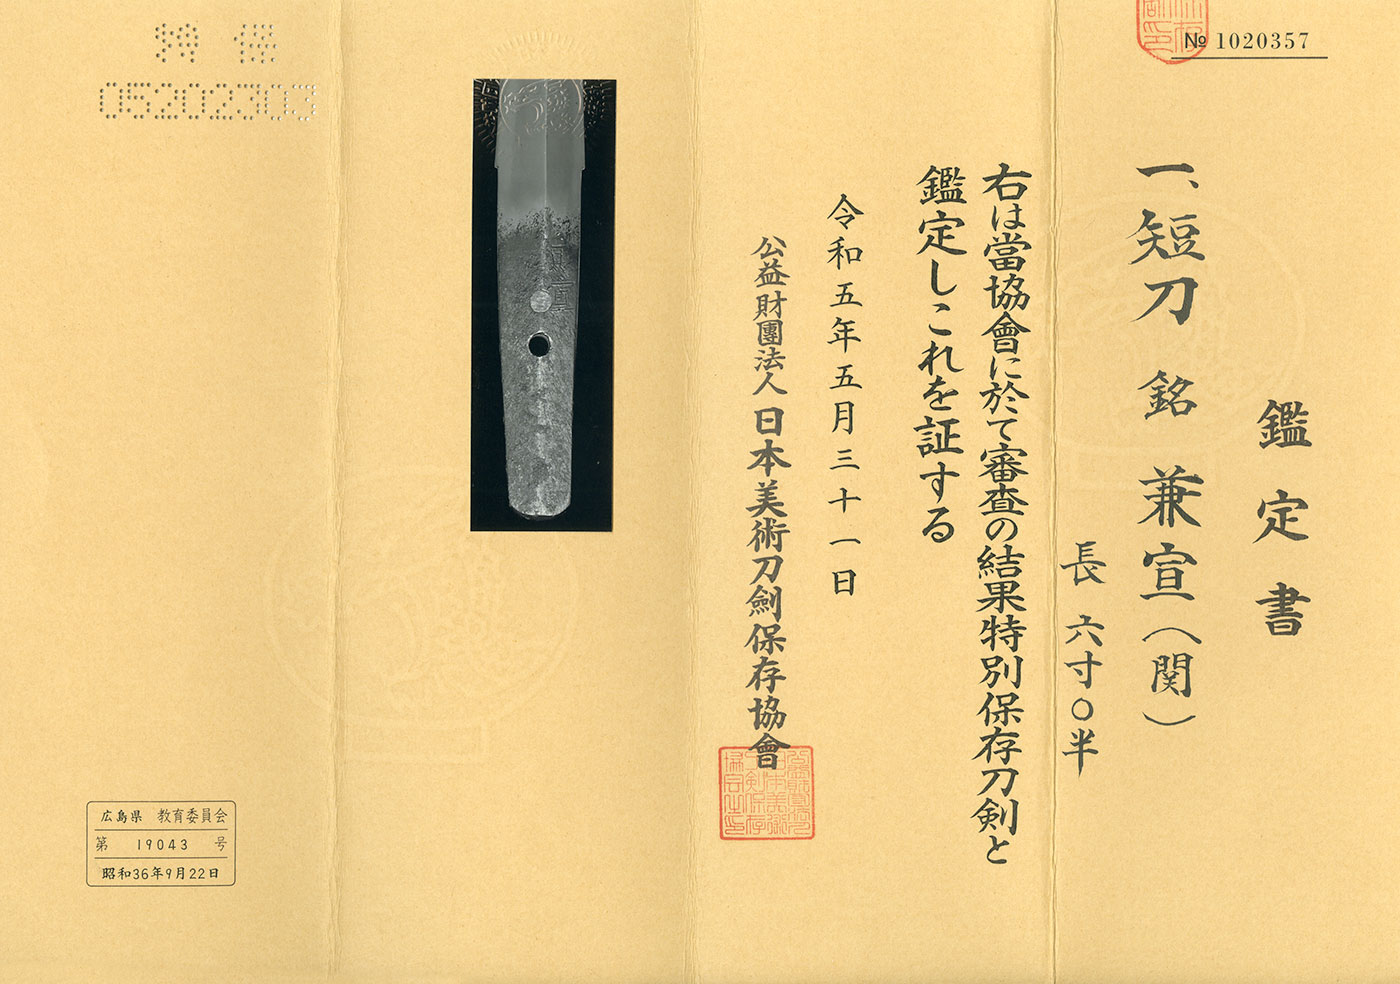 № 1020357
鑑定書
一、短刀 銘 兼宣(関)
長 六寸〇半
右は當協會に於て審査の結果特別保存刀剣と
鑑定しこれを証する
令和五年五月三十一日
公益財團法人 日本美術刀劍保存協會
特 保
05202303
広島県 教育委員会
第 19043 号
昭和36年9月22日